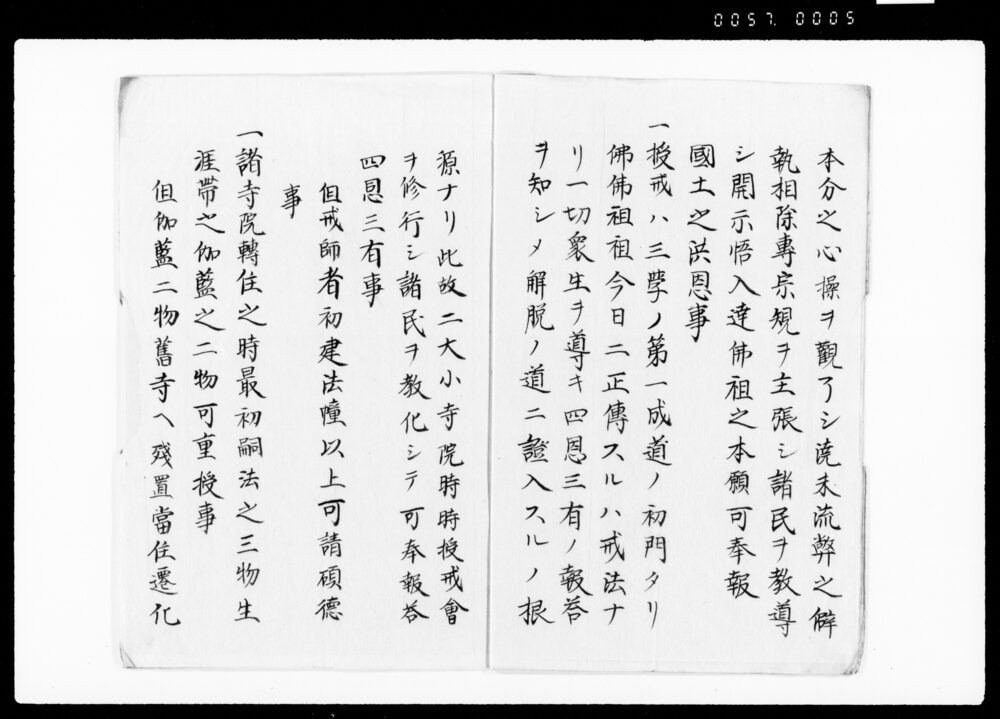 0057.0005
本分之心操ヲ觀了シ澆末流弊之僻
執相除專宗規ヲ主張シ諸民ヲ教導
シ開示悟入達佛祖之本願可奉報
國土之洪恩事
一授戒ハ三學ノ第一成道ノ初門タリ
佛佛祖祖今日ニ正傳スルハ戒法ナ
リ一切衆生ヲ導キ四恩三有ノ報荅
ヲ知シメ解脱ノ道ニ證入スルノ根
源ナリ此故ニ大小寺院時時授戒會
ヲ修行シ諸民ヲ教化シテ可奉報荅
四恩三有事
但戒師者初建法幢以上可請碩德
事
一諸寺院轉住之時最初嗣法之三物生
涯帶之伽藍之二物可重授事
但伽藍二物舊寺ヘ殘置當住遷化